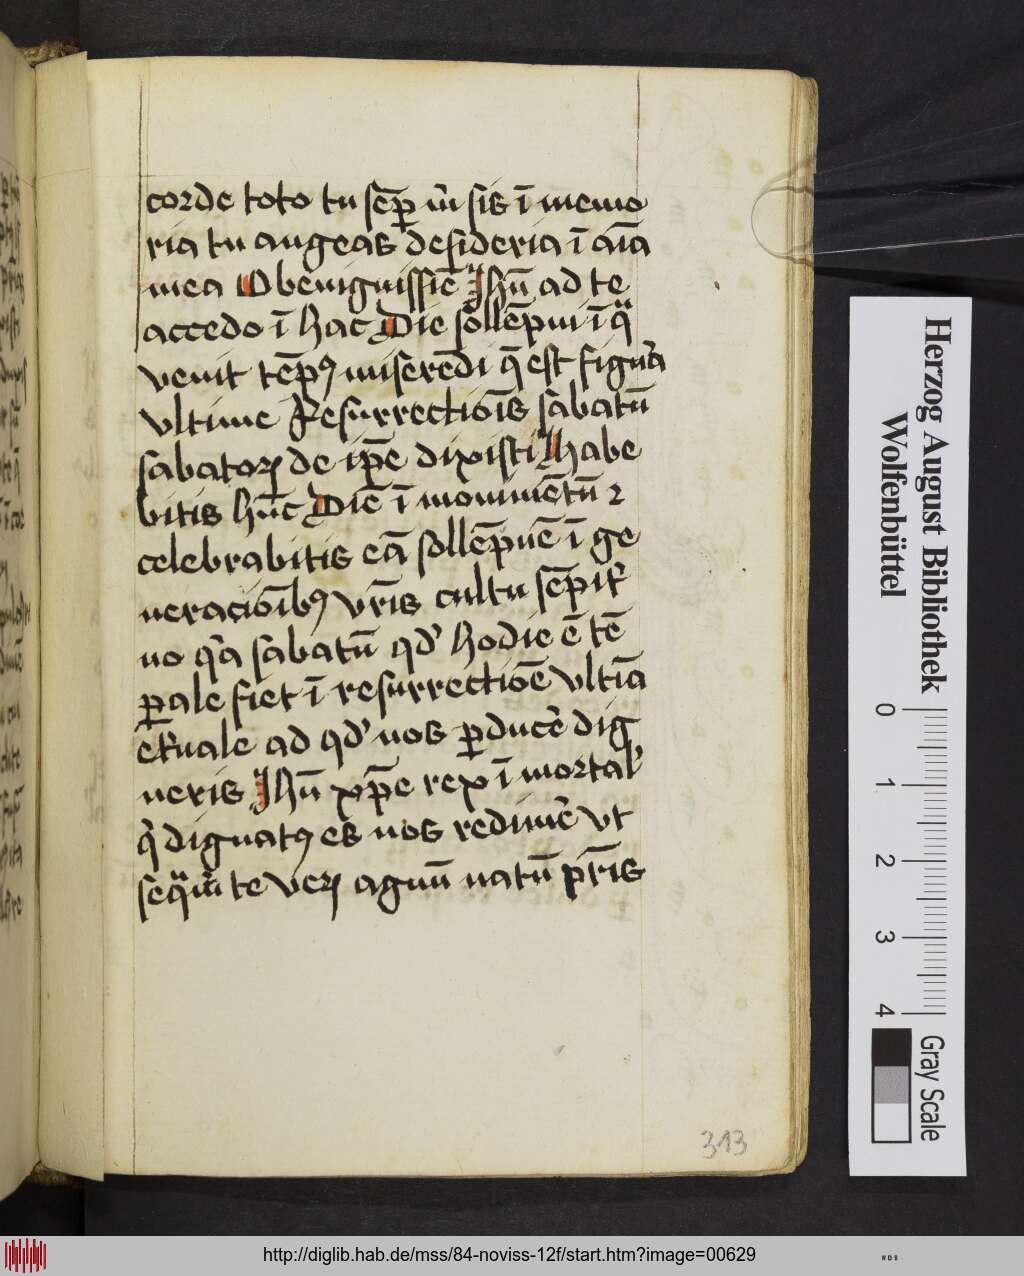 corde toto tu sēp m̄ sis ī memo
ria tu augeas desideria ī aīa
mea O benignissīe Jhū ad te
accedo ī hac Die sollēpni ī qͣ
venit tēpꝰ miserēdi q̄ est figura
vltime Resurrectiōis sabatū
sabatoꝝ de ip̄e dixisti Habe
bitis hūc Diē ī monimētū ꝛ
celebrabitis eā sollēpnē ī ge
neraciōibꝰ vr̄is cultu sēpit̾
no qͥa sabatū qd̾ hodie ē tē
ꝑale fiet ī resurrectiōe vltīa
et̾nale ad qd̾ nos ꝑducē dig
neris Jhū xp̄e rex ī mortal̾
qͥ dignatꝰ es nos redimē vt
seqͣm̄ te veꝝ agnū natū pr̄is
313
Herzog August Bibliothek
Wolfenbüttel
0 1 2 3 4
Gray Scale
http://diglib.hab.de/mss/84-noviss-12f/start.htm?image=00629